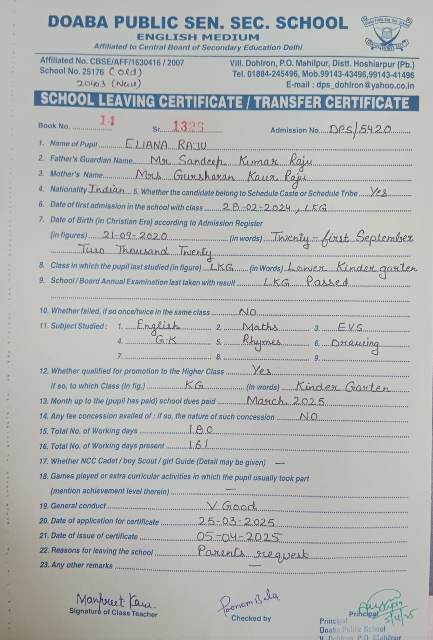 DOABA PUBLIC SEN. SEC. SCHOOL
ENGLISH MEDIUM
Affiliated to Central Board of Secondary Education Delhi
Affiliated No. CBSE/AFF/1630416 / 2007
School No. 25176 (old)
20403 (New)
Vill. Dohlron, P.O. Mahilpur, Distt. Hoshiarpur (Pb.)
Tel. 01884-245496, Mob.99143-43496,99143-41496
E-mail : dps_dohlron@yahoo.co.in
SCHOOL LEAVING CERTIFICATE / TRANSFER CERTIFICATE
Book No. 14 Sr. 1326 Admission No. DPS/5420
1. Name of Pupil ELIANA RAJU
2. Father's Guardian Name Mr. Sandeep Kumar Raju
3. Mother's Name Mrs Gursharan Kaur Raju
4. Nationality Indian 5. Whether the candidate belong to Schedule Caste or Schedule Tribe Yes
6. Date of first admission in the school with class 28-02-2024, LKG
7. Date of Birth (in Christian Era) according to Admission Register
(in figures) 21-09-2020 (in words) Twenty-first September
Two Thousand Twenty
8. Class in which the pupil last studied (in figure) LKG (in Words) Lower Kinder garten
9. School / Board Annual Examination last taken with result LKG Passed
10. Whether failed, if so once/twice in the same class NO
11. Subject Studied : 1. English 2. Maths 3. EVS
4. G.K 5. Rhymes 6. Drawing
7. 8. 9.
12. Whether qualified for promotion to the Higher Class Yes
if so, to which Class (in fig.) KG (in words) Kinder Garten
13. Month up to the (pupil has paid) school dues paid March, 2025
14. Any fee concession availed of : if so, the nature of such concession NO
15. Total No. of Working days 180
16. Total No. of Working days present 161
17. Whether NCC Cadet / boy Scout / girl Guide (Detail may be given) —
18. Games played or extra curricular activities in which the pupil usually took part
(mention achievement level therein) —
19. General conduct V. Good
20. Date of application for certificate 25-03-2025
21. Date of issue of certificate 05-04-2025
22. Reasons for leaving the school Parents request
23. Any other remarks —
Manpreet Kaur
Signature of Class Teacher
Poonam Bala
Checked by
Principal
5/4/25
Principal
Doaba Public School
V. Dohlron, P.O. Mahilpur